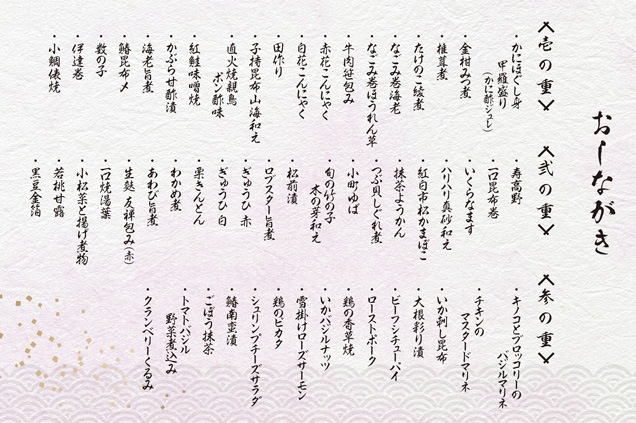 おしながき
壱の重
・かにほぐし身
甲羅盛り
(かに酢ジュレ)
・金柑みつ煮
・椎茸煮
・たけのこ綾煮
・なごみ巻海老
・なごみ巻ほうれん草
・牛肉笹包み
・赤花こんにゃく
・白花こんにゃく
・田作り
・子持昆布山海和え
・直火焼親鳥
ポン酢味
・紅鮭味噌焼
・かぶら甘酢漬
・海老旨煮
・鰊昆布〆
・数の子
・伊達巻
・小鯛俵焼
弐の重
・寿高野
・一口昆布巻
・いくらなます
・ハリハリ真砂和え
・紅白市松かまぼこ
・抹茶ようかん
・つぶ貝しぐれ煮
・小町ゆば
・旬の竹の子
木の芽和え
・松前漬
・ロブスター旨煮
・ぎゅうひ 赤
・ぎゅうひ 白
・栗きんとん
・わかめ煮
・あわび旨煮
・生麩 友禅包み(赤)
・一口焼湯葉
・小松菜と揚げ煮物
・若桃甘露
・黒豆金箔
参の重
・キノコとブロッコリーの
バジルマリネ
・チキンの
マスタードマリネ
・いか刺し昆布
・大根彩り漬
・ビーフシチューパイ
・ローストポーク
・鶏の香草焼
・いかバジルナッツ
・雪掛けローズサーモン
・鶏のピカタ
・シュリンプチーズサラダ
・鰆南蛮漬
・ごぼう抹茶
・トマトバジル
野菜煮込み
・クランベリーくるみ